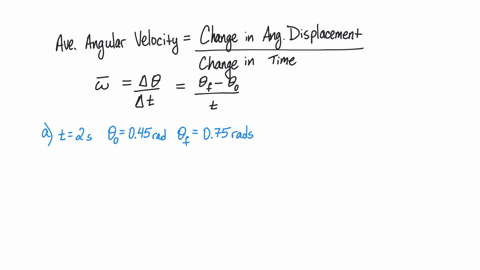 Ave. Angular Velocity = Change in Ang. Displacement / Change in Time
ω̄ = Δθ / Δt = θf − θo / t
a) t = 2s θo = 0.45 rad θf = 0.75 rads